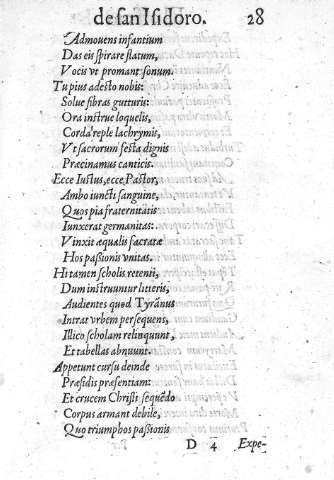 de san Isidoro. 28
Admouens infantium
Das eis spirare flatum,
Vocis vt promant sonum.
Tu pius adesto nobis:
Solue fibras gutturis:
Ora instrue loquelis,
Corda reple lachrymis,
Vt sacrorum festa dignis
Præcinamus canticis.
Ecce Iustus, ecce Pastor,
Ambo iuncti sanguine,
Quos pia fraternitatis
Iunxerat germanitas:
Vinxit æqualis sacratæ
Hos passionis vnitas.
Hi tamen scholis retenti,
Dum instruuntur litteris,
Audientes quod Tyrãnus
Intrat vrbem persequens,
Illico scholam relinquunt,
Et tabellas abnuunt.
Appetunt cursu deinde
Præsidis præsentiam:
Et crucem Christi sequẽdo
Corpus armant debile,
Quo triumphos passionis
D 4 Expe-